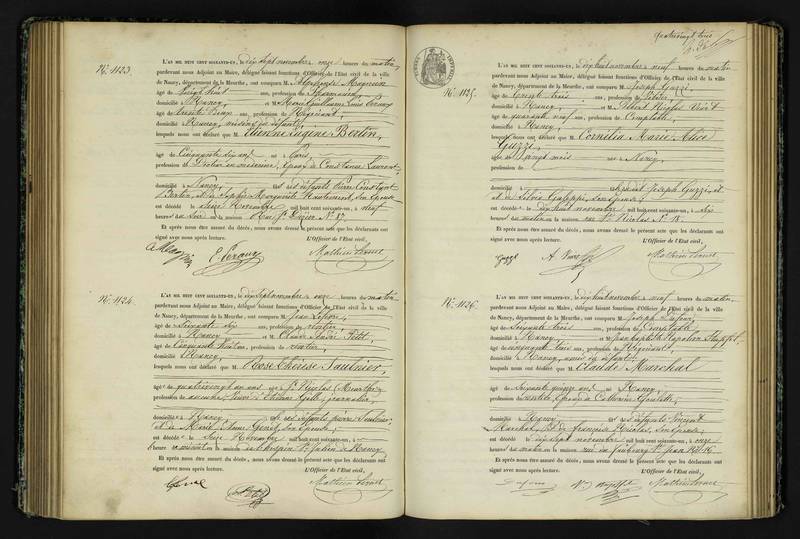 N.° 1123.
L'AN MIL HUIT CENT SOIXANTE-UN, le dix sept novembre onze heures du matin,
pardevant nous Adjoint au Maire, délégué faisant fonctions d'Officier de l'Etat civil de la ville
de Nancy, département de la Meurthe, ont comparu M. Alphonse
âgé de Vingt huit ans, profession de Pharmacien,
domicilié à Nancy, et M.
âgé de trente ans, profession de Négociant,
domicilié à Nancy, voisins du défunt
lesquels nous ont déclaré que M. Etienne Eugène Bertin,
âgé de Cinquante six ans né à Paris,
profession de Docteur en médecine, époux de Constance Laurent,
domicilié à Nancy, fils des défunts Pierre Constant
Bertin, et de Sophie Marguerite son épouse
est décédé le seize Novembre mil huit cent soixante-un, à neuf
heures du soir en sa maison Rue St Dizier N.° 87.
Et après nous être assuré du décès, nous avons dressé le présent acte que les déclarants ont
signé avec nous après lecture. L'Officier de l'Etat civil,
N.° 1124.
L'AN MIL HUIT CENT SOIXANTE-UN, le dix sept novembre onze heures du matin
pardevant nous Adjoint au Maire, délégué faisant fonctions d'Officier de l'Etat civil de la ville
de Nancy, département de la Meurthe, ont comparu M. Jean
âgé de Soixante dix ans, profession de rentier
domicilié à Nancy et M. Claude André Petit,
âgé de Cinquante ans, profession de rentier,
domicilié à Nancy,
lesquels nous ont déclaré que M. Rose Thérèse Saulnier,
âgé de quatre vingt un ans née à St Nicolas (Meurthe)
profession de veuve d'Etienne journalier,
domicilié à Nancy, fille des défunts pierre Saulnier,
et de Marie Anne son épouse
est décédé le Seize Novembre mil huit cent soixante-un, à
heure en la maison de l'hospice St Julien de Nancy
Et après nous être assuré du décès, nous avons dressé le présent acte que les déclarants ont
signé avec nous après lecture. L'Officier de l'Etat civil,
quatre vingt trois
N.° 1125.
L'AN MIL HUIT CENT SOIXANTE-UN, le dix huit novembre neuf heures du matin
pardevant nous Adjoint au Maire, délégué faisant fonctions d'Officier de l'Etat civil de la ville
de Nancy, département de la Meurthe, ont comparu M. Joseph Guzzi,
âgé de trente trois ans, profession de
domicilié à Nancy, et M. Albert
âgé de quarante neuf ans, profession de Comptable,
domicilié à Nancy,
lesquels nous ont déclaré que M. Cornélia Marie Alice
Guzzi,
âgé de Vingt mois née à Nancy
profession de
domicilié à fille de Joseph Guzzi, et
et de son épouse;
est décédé le dix huit novembre mil huit cent soixante-un, à six
heures du matin en la maison rue St Nicolas N.° 18.
Et après nous être assuré du décès, nous avons dressé le présent acte que les déclarants ont
signé avec nous après lecture. L'Officier de l'Etat civil,
N.° 1126.
L'AN MIL HUIT CENT SOIXANTE-UN, le dix huit novembre neuf heures du matin
pardevant nous Adjoint au Maire, délégué faisant fonctions d'Officier de l'Etat civil de la ville
de Nancy, département de la Meurthe, ont comparu M. Joseph Dufour,
âgé de Soixante trois ans, profession de Comptable,
domicilié à Nancy, et M. Jean baptiste Napoléon
âgé de cinquante trois ans, profession de Négociant,
domicilié à Nancy, amis du défunt
lesquels nous ont déclaré que M. Claude Marchal
âgé de Soixante quinze ans né à Nancy
profession de rentier, époux de Catherine
domicilié à Nancy fils des défunts Vincent
Marchal, et de françoise Nicolas, son épouse,
est décédé le dix sept novembre mil huit cent soixante-un, à onze
heures du matin en la maison rue du faubourg St Jean N.° 16
Et après nous être assuré du décès, nous avons dressé le présent acte que les déclarants ont
signé avec nous après lecture. L'Officier de l'Etat civil,
Dufour